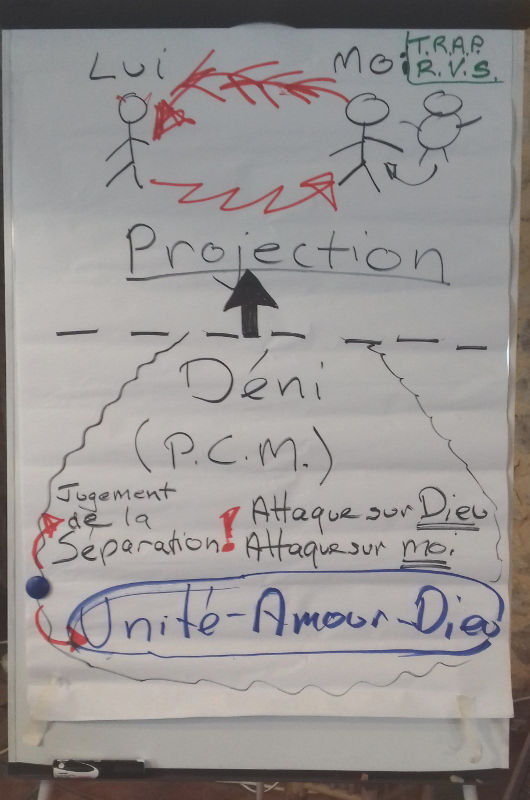 Lui
Moi
T.R.A.P.
R.V.S.
Projection
Déni
(P.C.M.)
Jugement
de la
Séparation!
Attaque sur Dieu
Attaque sur moi
Unité-Amour-Dieu